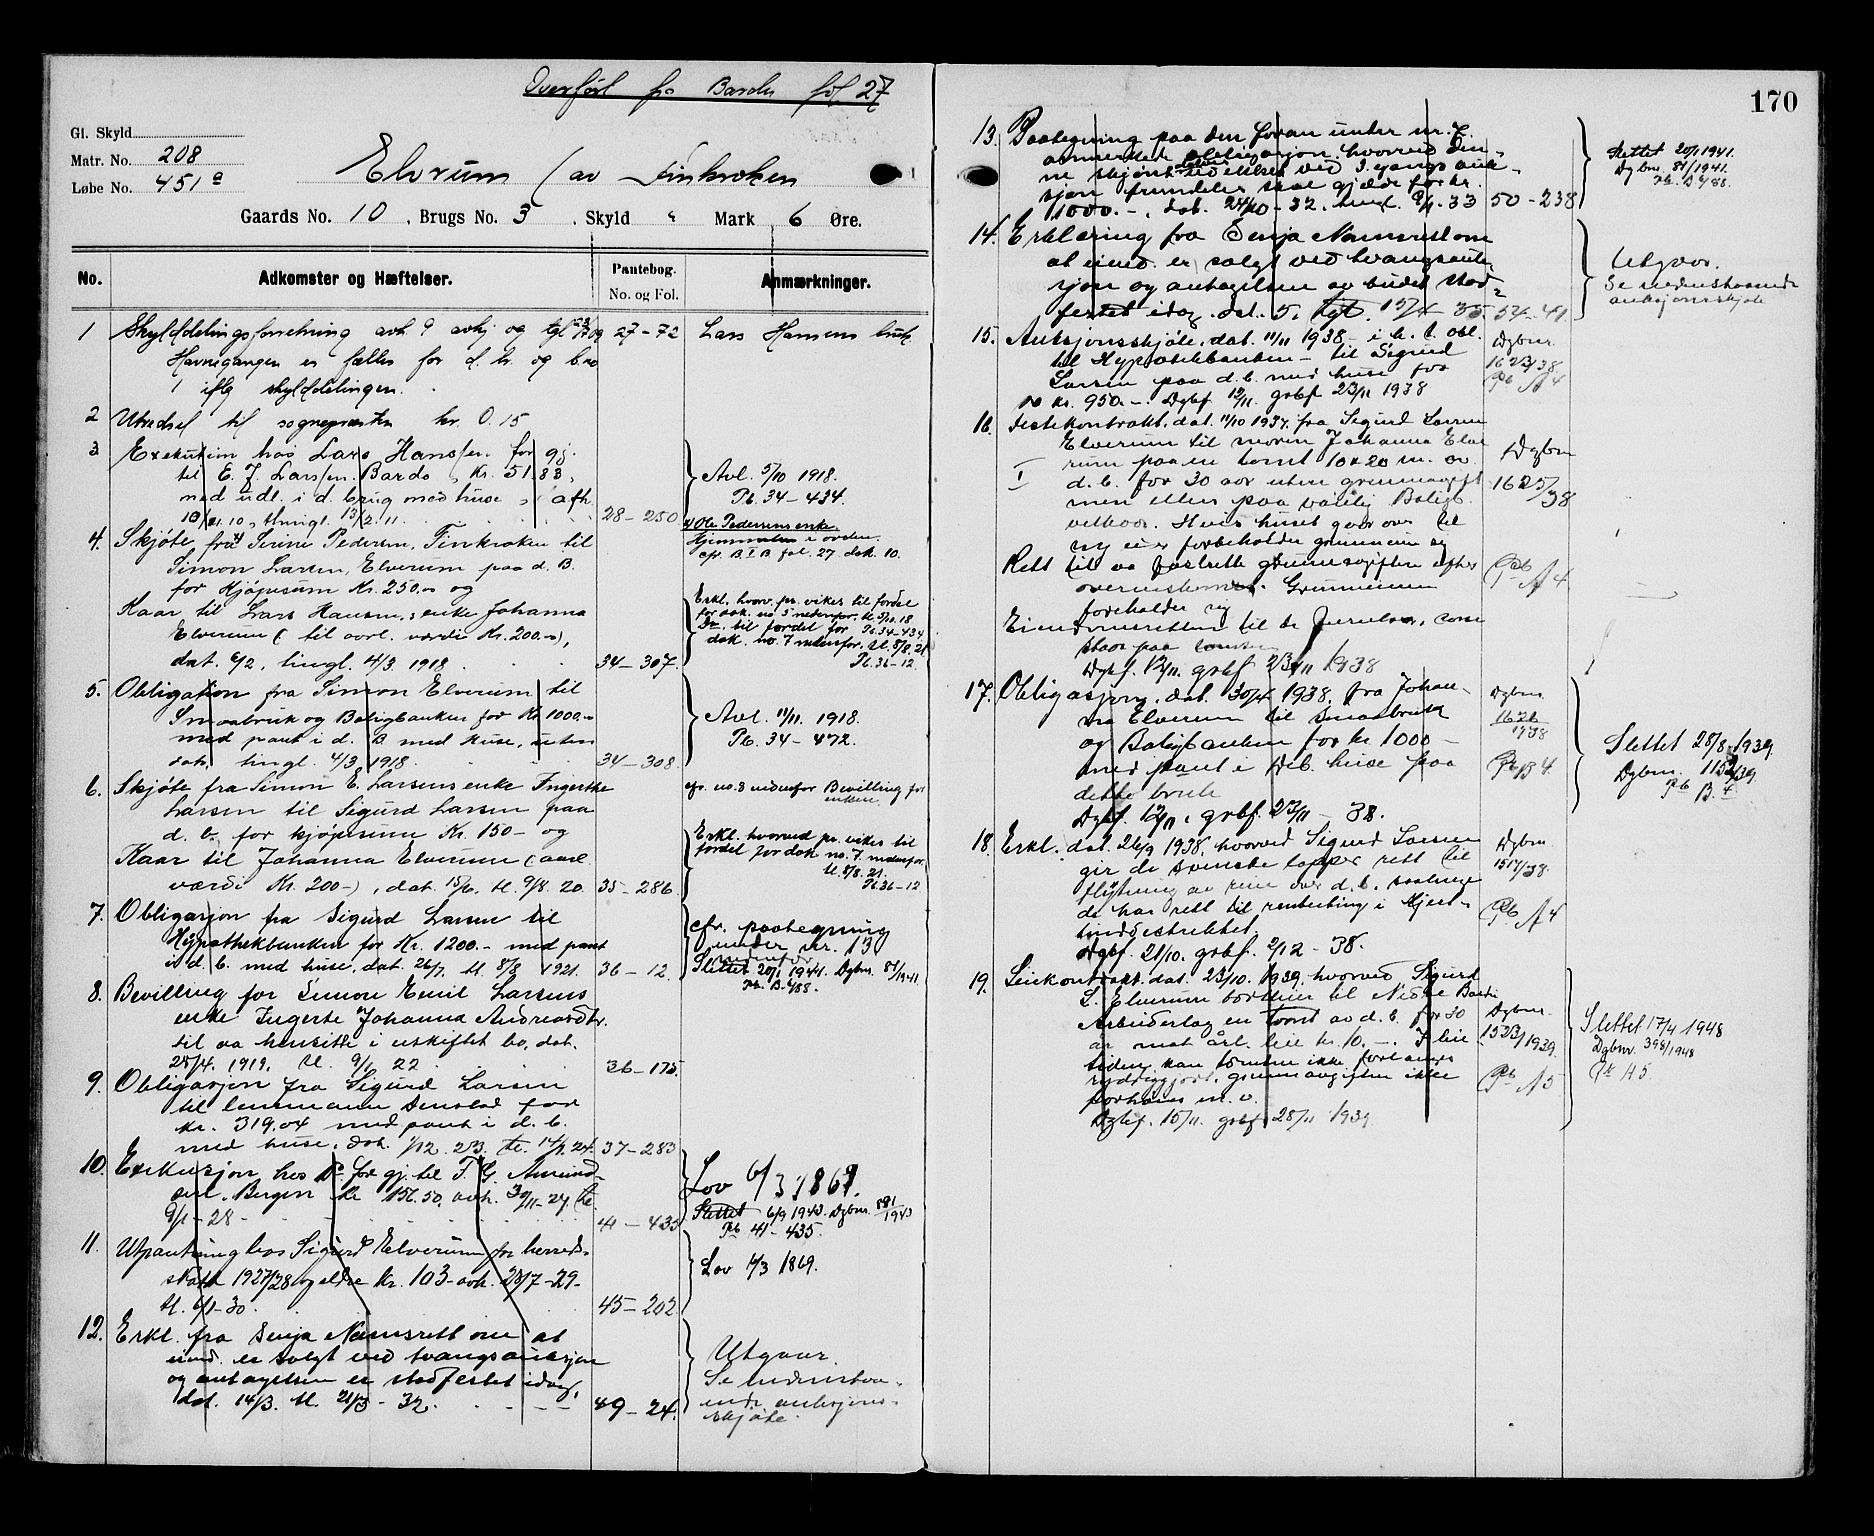 Overført fra Bardu fol 27
Gl. Skyld
Matr. No. 208
Løbe No. 451a
Elvrum (av Finkroken
Gaards No. 10, Brugs No. 3, Skyld Mark 6 Øre.
No. Adkomster og Hæftelser. Pantebog. No. og Fol. Anmærkninger.
1 Skylddelingsforretning avh 9 og 27-72 Lars Hansens bruk
Havnegangen er fælles for d. br. og b.no
1 iflg skylddelingen.
2 Utredsel til sognepresten kr. 0.15
3 Exekution hos Lars Hanssen for gj.
til E. J. Larssen, Bardo, Kr. 51.83,
med udl. i d. brug med huse, afh.
10, thingl. 13/2 11. 28-250
Avl. 5/10 1918.
Pb. 34-434.
4. Skjøte fra x) Serine Pedersen, Finkroken til
Simon Larsen, Elverum paa d. B.
for Kjøpesum Kr. 250.- og
Kaar til Lars Hansen,s enke Johanna
Elverum ( til aarl. værdi Kr. 200.-),
dat. 6/2, tingl. 4/3 1918. 34-307.
x) Ole Pedersens enke.
Hjemmelen i orden.
cfr. B I B fol. 27. dok. 10.
Erkl. hvorv. pr. vikes til fordel
for dok. no 5 nedenfor. tl. 5/10. 18
Do. til fordel for Pb. 34-434
dok. no. 7 nedenfor, tl. 8/8. 21
Pb. 36-12.
5. Obligation fra Simon Elverum til
Smaabruk og Boligbanken for Kr 1000.-
med pant i d. B med Huse, uten
dat. tingl. 4/3 1918. 34-308
Avl. 11/11. 1918.
Pb. 34-472.
6. Skjøte fra Simon E. Larsens enke Ingerthe
Larsen til Sigurd Larsen paa
d. b. for kjøpesum Kr. 150- og
Kaar til Johanna Elverum (aarl.
værdi Kr. 200-), dat. 15/6. tl. 9/8. 20. 35-286.
cfr. no. 8 nedenfor Bevilling for
enken.
Erkl. hvorved pr. vikes til
fordel for dok no. 7 nedenfor.
tl. 8/8. 21.
Pb. 36-12
7. Obligasjon fra Sigurd Larsen til
Hypothekbanken for Kr. 1200.- med pant
i d. b. med huse, dat. 26/7. tl. 8/8 1921. 36-12.
cfr. paategning
under nr. 13
nedenfor
Slettet 20/1 1941. Dgbnr. 81/1941.
Pb. B. 6/88.
8. Bevilling for Simon Emil Larsens
enke Ingerte Johanna Andreasdtr.
til aa hensitte i uskiftet bo, dat.
28/4. 1919. tl. 9/1 22. 36-175.
9. Obligasjon fra Sigurd Larsen
til lensmann Denstad for
kr. 319.04 med pant i d. b.
med huse, dat. 1/12. 23. tl. 17/1.24. 37-283
10. Exekusjon hos Do for gj. til F. G. Amund-
sen, Bergen kr 156.50, avh. 30/11-27. tl.
9/1-28 41-435
Lov 6/3 1869.
Slettet 6/9 1943. Dgbnr. 881/1943
Pb 41-435.
11. Utpantning hos Sigurd Elverum for herreds-
skatt 1927/28 og eldre kr. 103- avh. 23/7-29-
tl. 6/1-30. 45-202
Lov 6/3 1869.
12. Erkl. fra Senja Namsrett om at
eiend. er solgt ved tvangsauksjon
og antagelsen er stadfestet idag,
dat. 14/3. tl. 21/3-32. 49-24.
Utgaar.
Se nedenstaa-
ende auksjons-
skjøte.
170
13. Paategning paa den foran under nr. 7.
anmerkede obligasjon, hvorved den-
ne ved 3. gangs auk-
sjon fremdeles skal gjælde for kr.
1000.-, dat. 24/10-32. tingl. 9/1. 33 50-238
Slettet 20/1 1941.
Dgbnr. 81/1941.
Pb. B 6/88.
14. Erklæring fra Senja Namsrett om
at eiend. er solgt ved tvangsauk-
sjon og antagelsen av budet stad-
festet idag. dat. 5. 54-41.
Utgaar.
Se nedenstaaende
auksjonsskjøte
15. Auksjonsskjøte, dat. 11/11 1938 i h. t. obl.
til Hypotekbanken - til Sigurd
Larsen paa d. b. med huse for
kr. 950.-. Dgbf 12/11. grbf 23/11 1938
Dgbnr.
1623/38
Pb A 4
16. Festekontrakt, dat. 11/10 1937, fra Sigurd Larsen
Elverum til moren Johanna Elve
rum paa en tomt 10x20 m. av
d. b. for 30 aar uten grunnavgift
men ellers paa vanlig Boligb.
vilkaar. Hvis huset gaar over til
ny eier forbeholder grunneieren sig
Rett til aa fastsette grunnavgiften efter
overenskomst. Grunneieren
forbeholder sig
Eiendomsretten til de som
staar paa tomten
Dgbf. 12/11. grbf 23/11 1938
Dgbnr
1625/38
Pb A 4
17. Obligasjon, dat. 30/4 1938, fra Johan-
na Elverum til Smaabruk
og Boligbanken for kr 1000-
med pant i Deb. huse paa
dette bruk
Dgbf. 12/11, grbf. 23/11-38.
Dgbnr.
1626/1938
Pb B 4.
Slettet 28/8 1939
Dgbnr. 1152/39
Pb B. 4
18. Erkl. dat. 26/9 1938, hvorved Sigurd Larsen
gir de svenske lapper rett til
flytning av rein over d. b. saalenge
de har rett til renbeiting i Hjert-
tinddistriktet.
Dgbf. 21/10. grbf. 2/12-38.
Dgbnr
1517/38.
Pb A 4
19. Leiekontrakt dat. 23/10. 1939, hvorved Sigurd
L. Elverum bortleier til Nedre Bardu
Arbeiderlag en tomt av d. b. for 30
år mot årl. leie kr. 10.-. I leie
tiden kan tomten ikke forlanges
ryddiggjort, grunnavgiften ikke
forhøies m. v.
Dgbf. 15/11. grbf. 28/11 1939.
Dgbnr.
1523/1939.
Pb A5
Slettet 17/4 1948
Dgbnr. 398/1948
Pb A5